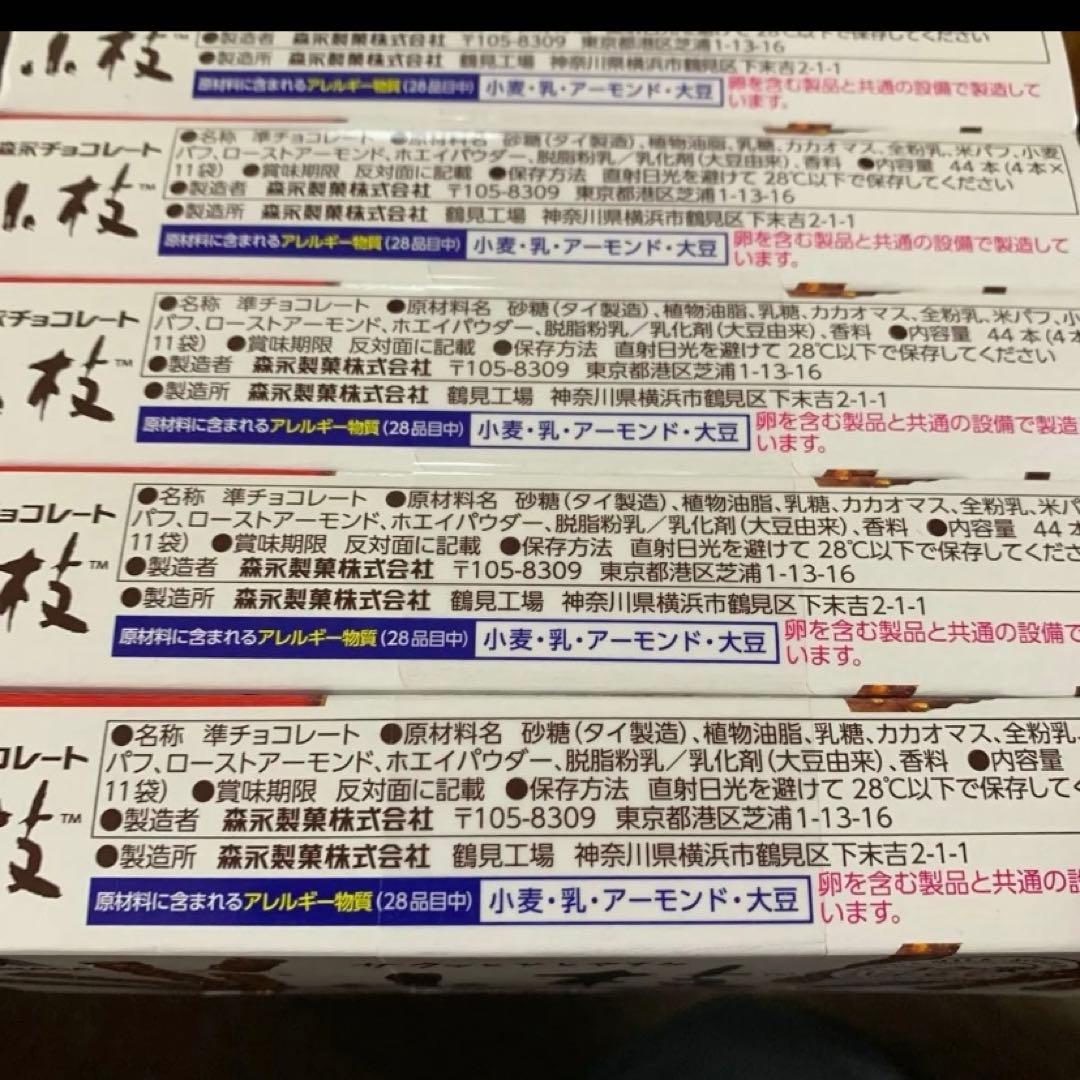 小枝™
●製造者 森永製菓株式会社 〒105-8309 東京都港区芝浦1-13-16
28℃以下で保存してください
●製造所 森永製菓株式会社 鶴見工場 神奈川県横浜市鶴見区下末吉2-1-1
原材料に含まれるアレルギー物質(28品目中) 小麦・乳・アーモンド・大豆
卵を含む製品と共通の設備で製造して
います。
森永チョコレート
小枝™
●名称 準チョコレート ●原材料名 砂糖(タイ製造)、植物油脂、乳糖、カカオマス、全粉乳、米パフ、小麦
パフ、ローストアーモンド、ホエイパウダー、脱脂粉乳/乳化剤(大豆由来)、香料 ●内容量 44本(4本×
11袋) ●賞味期限 反対面に記載 ●保存方法 直射日光を避けて 28℃以下で保存してください
●製造者 森永製菓株式会社 〒105-8309 東京都港区芝浦1-13-16
●製造所 森永製菓株式会社 鶴見工場 神奈川県横浜市鶴見区下末吉2-1-1
原材料に含まれるアレルギー物質(28品目中) 小麦・乳・アーモンド・大豆
卵を含む製品と共通の設備で製造して
います。
チョコレート
枝™
●名称 準チョコレート ●原材料名 砂糖(タイ製造)、植物油脂、乳糖、カカオマス、全粉乳、米パフ、小
パフ、ローストアーモンド、ホエイパウダー、脱脂粉乳/乳化剤(大豆由来)、香料 ●内容量 44本(4本
11袋) ●賞味期限 反対面に記載 ●保存方法 直射日光を避けて 28℃以下で保存してください
●製造者 森永製菓株式会社 〒105-8309 東京都港区芝浦1-13-16
●製造所 森永製菓株式会社 鶴見工場 神奈川県横浜市鶴見区下末吉2-1-1
原材料に含まれるアレルギー物質(28品目中) 小麦・乳・アーモンド・大豆
卵を含む製品と共通の設備で製造
います。
ョコレート
枝™
●名称 準チョコレート ●原材料名 砂糖(タイ製造)、植物油脂、乳糖、カカオマス、全粉乳、米パ
パフ、ローストアーモンド、ホエイパウダー、脱脂粉乳/乳化剤(大豆由来)、香料 ●内容量 44本
11袋) ●賞味期限 反対面に記載 ●保存方法 直射日光を避けて 28℃以下で保存してくださ
●製造者 森永製菓株式会社 〒105-8309 東京都港区芝浦1-13-16
●製造所 森永製菓株式会社 鶴見工場 神奈川県横浜市鶴見区下末吉2-1-1
原材料に含まれるアレルギー物質(28品目中) 小麦・乳・アーモンド・大豆
卵を含む製品と共通の設備で
います。
コレート
枝™
●名称 準チョコレート ●原材料名 砂糖(タイ製造)、植物油脂、乳糖、カカオマス、全粉乳、
パフ、ローストアーモンド、ホエイパウダー、脱脂粉乳/乳化剤(大豆由来)、香料 ●内容量
11袋) ●賞味期限 反対面に記載 ●保存方法 直射日光を避けて 28℃以下で保存して
●製造者 森永製菓株式会社 〒105-8309 東京都港区芝浦1-13-16
●製造所 森永製菓株式会社 鶴見工場 神奈川県横浜市鶴見区下末吉2-1-1
原材料に含まれるアレルギー物質(28品目中) 小麦・乳・アーモンド・大豆
卵を含む製品と共通の設
います。